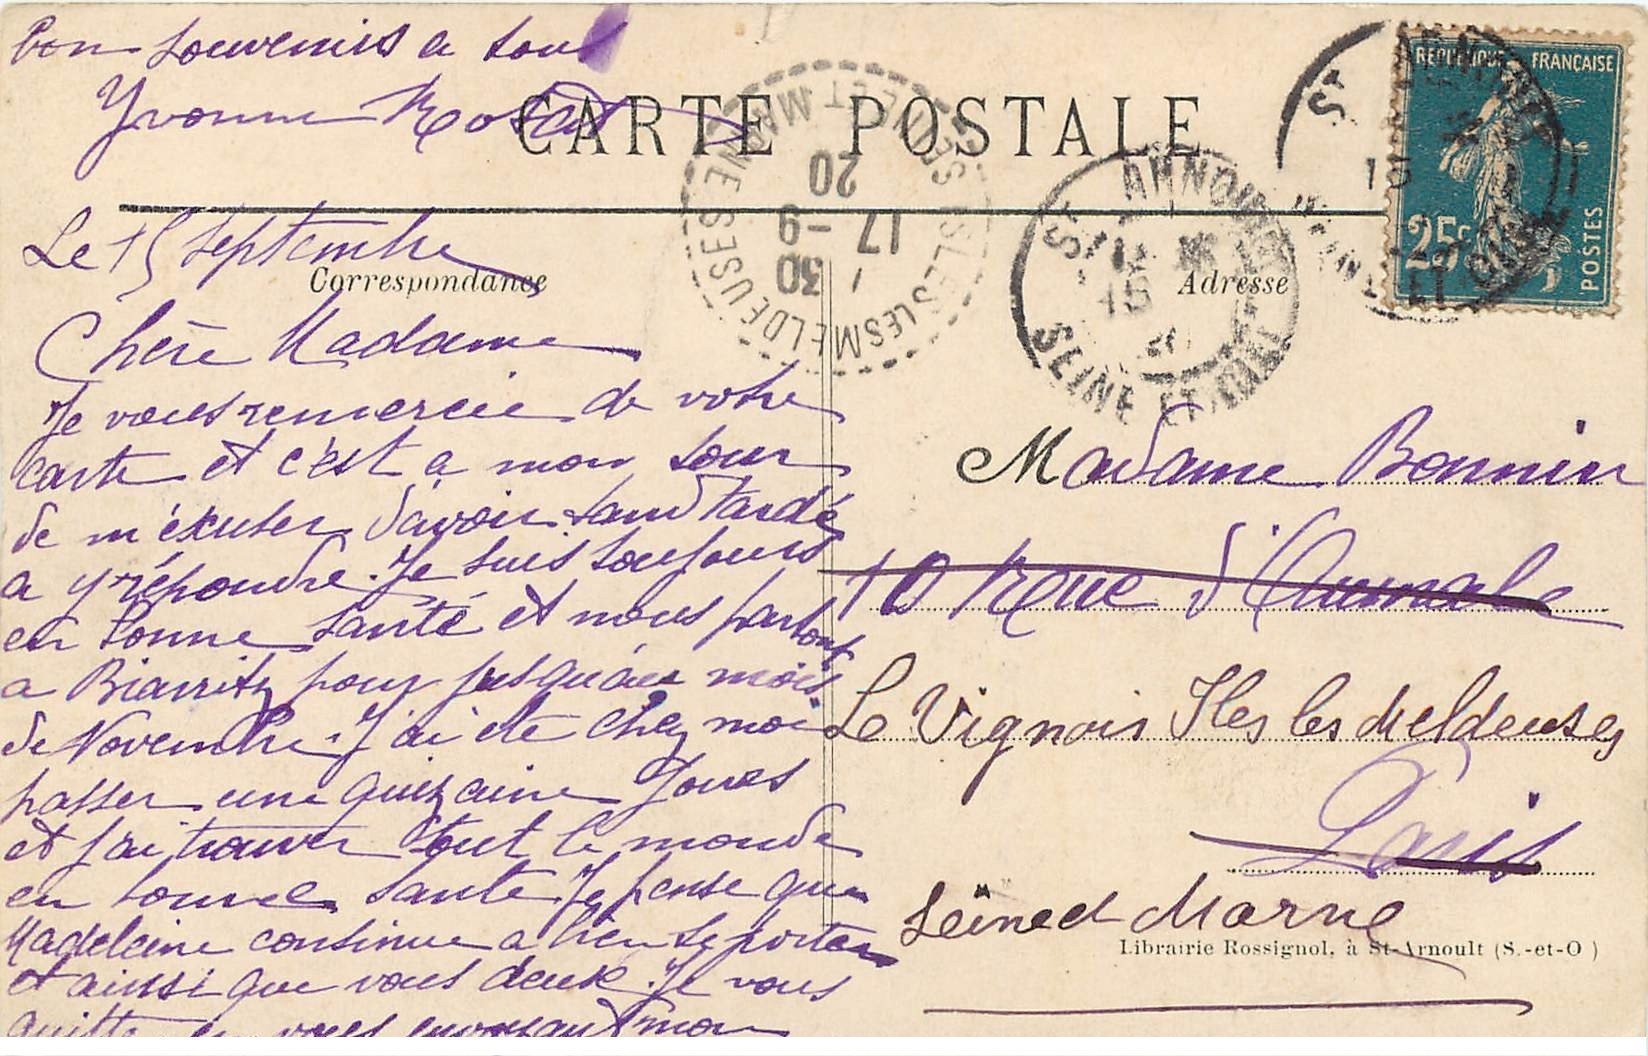 bon souvenirs a tous
Yvonne
CARTE POSTALE
REPUBLIQUE FRANÇAISE
25c
POSTES
ST ARNOULT
SEINE ET OISE
15
ISLES LES MELDEUSES
SEINE ET MARNE
30
17 -9
20
Correspondance
Adresse
Le 15 Septembre
Chère Madame
Je vous remercie de votre
carte et c'est a mon tour
de m'éxcuser d'avoir tant tardé
a y répondre. Je suis toujours
en bonne santé et nous partons
a Biarritz pour jusqu'au mois
de Novembre. J'ai ete chez moi
passer une quizaine Jours
et j'ai trouver tout le monde
en bonne sante. Je pense que
Madeleine continue a bien se porter
et ainssi que vous deux. Je vous
quitte en vous envoyant mon
Madame Bonnin
10 Rue d'Aumale
Le Vignois Iles les Meldeuses
Paris
Seine et Marne
Librairie Rossignol, à St-Arnoult (S.-et-O)